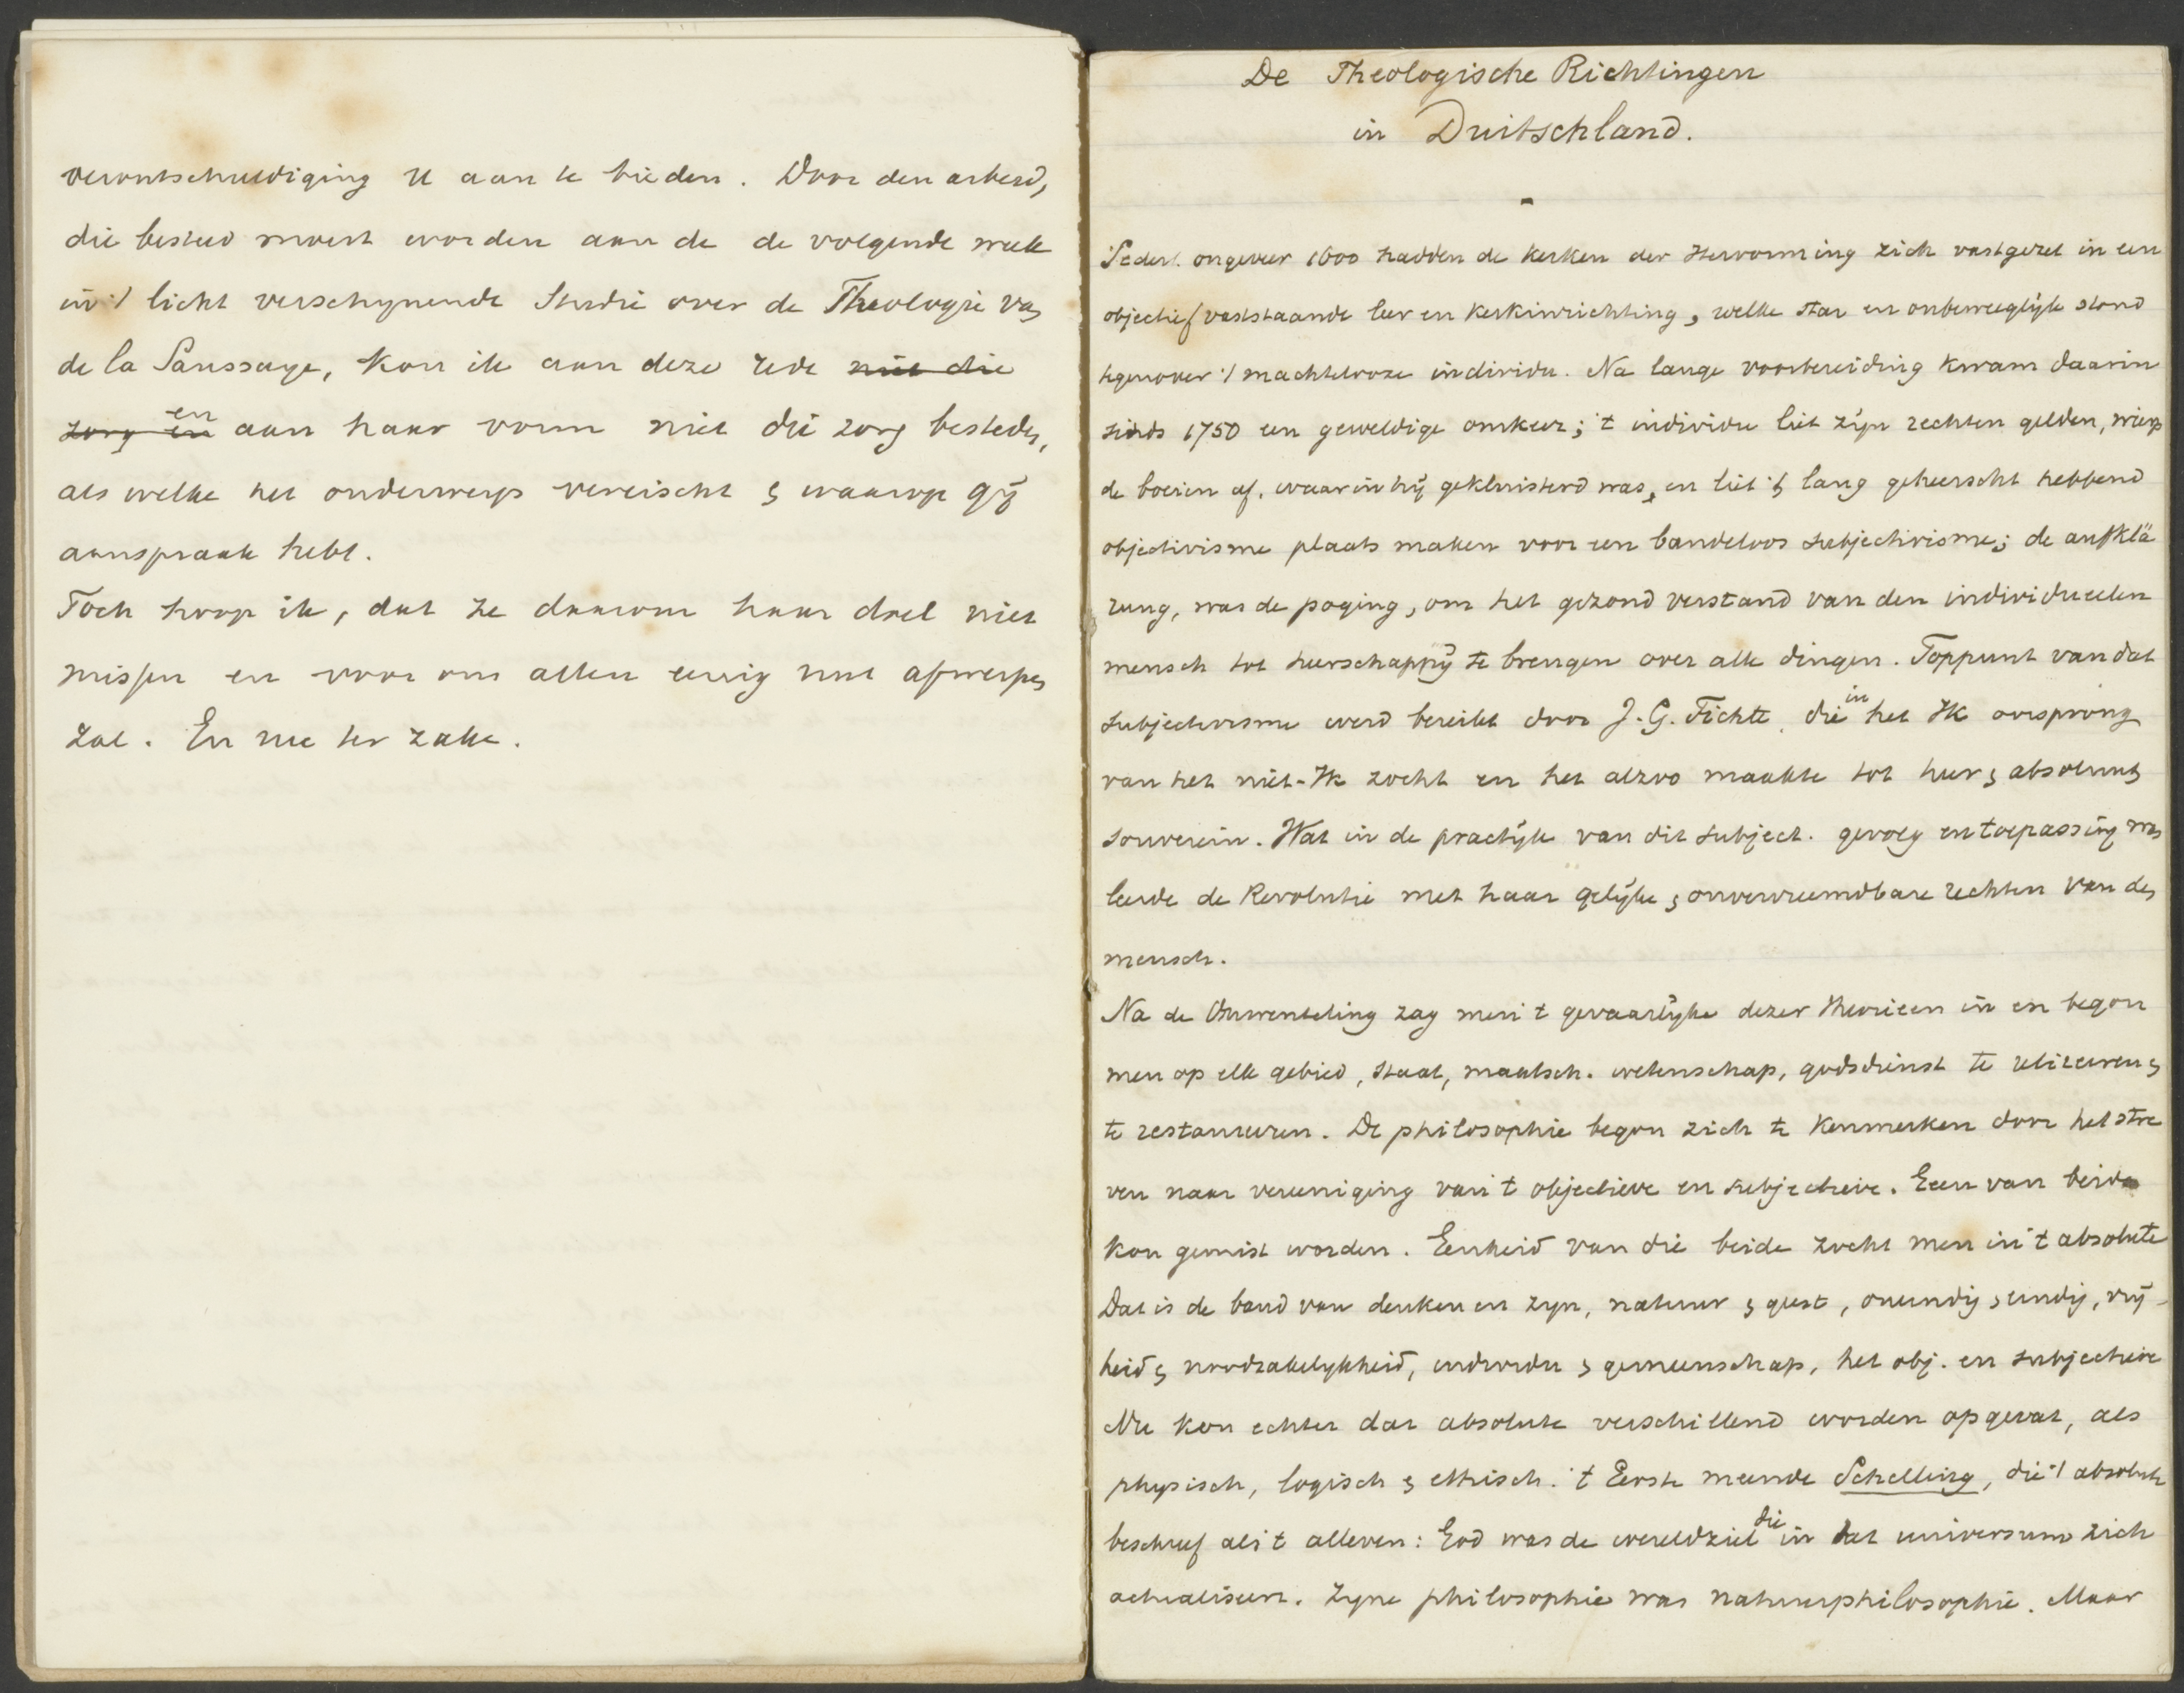 verontschuldiging U aan te bieden. Door den arbeid,
die besteed moest worden aan de de volgende week
in 't licht verschynende Studie over de Theologie van
de la Saussaye, kon ik aan deze rede niet die
zorg en en aan haar vorm niet die zorg besteden,
als welke het onderwerp vereischt & waarop gij
aanspraak hebt.
Toch hoop ik, dat ze daarom haar doel niet
missen en voor ons allen eenig nut afwerpen
zal. En nu ter zake.
De Theologische Richtingen
in Duitschland.
-
Sedert ongeveer 1600 hadden de kerken der Hervorming zich vastgezet in een
objectief vaststaande leer en kerkinrichting, welke star en onbeweeglijk stond
tegenover 't machtelooze individu. Na lange voorbereiding kwam daarin
sinds 1750 een geweldige omkeer; 't individu liet zijn rechten gelden, wierp
de boeien af, waarin hij gekluisterd was, en liet 't lang geheerscht hebbend
objectivisme plaats maken voor een bandeloos subjectivisme; de aufklä
rung, was de poging, om het gezond verstand van den individueelen
mensch tot heerschappij te brengen over alle dingen. Toppunt van dat
subjectivisme werd bereikt door J. G. Fichte, die in het Ik oorsprong
van het niet-Ik zocht en het alzoo maakte tot heer & absoluut
souverein. Wat in de practijk van dit subject. gevolg en toepassing was
leerde de Revolutie met haar gelijke & onvervreemdbare rechten van den
mensch.
Na de Omwenteling zag men 't gevaarlijke dezer theorieen in en begon
men op elk gebied, staat, maatsch. wetenschap, godsdienst te
te restaureren. De philosophie begon zich te kenmerken door het stre
ven naar vereeniging van 't objectieve en subjectieve. Geen van beide
kon gemist worden. Eenheid van die beide zocht men in 't absolute
Dat is de band van denken en zyn, natuur & geest, oneindig & eindig, vrij-
heid & noodzakelykheid, individu & gemeenschap, het obj. en subjectieve
Nu kon echter dat absolute verschillend worden opgevat, als
physisch, logisch & ethisch. 't Eerste meende Schelling, die 't absolute
beschreef als 't alleven: God was de wereldziel die in dat universum zich
actualiseert. Zyne philosophie was natuurphilosophie. Maar